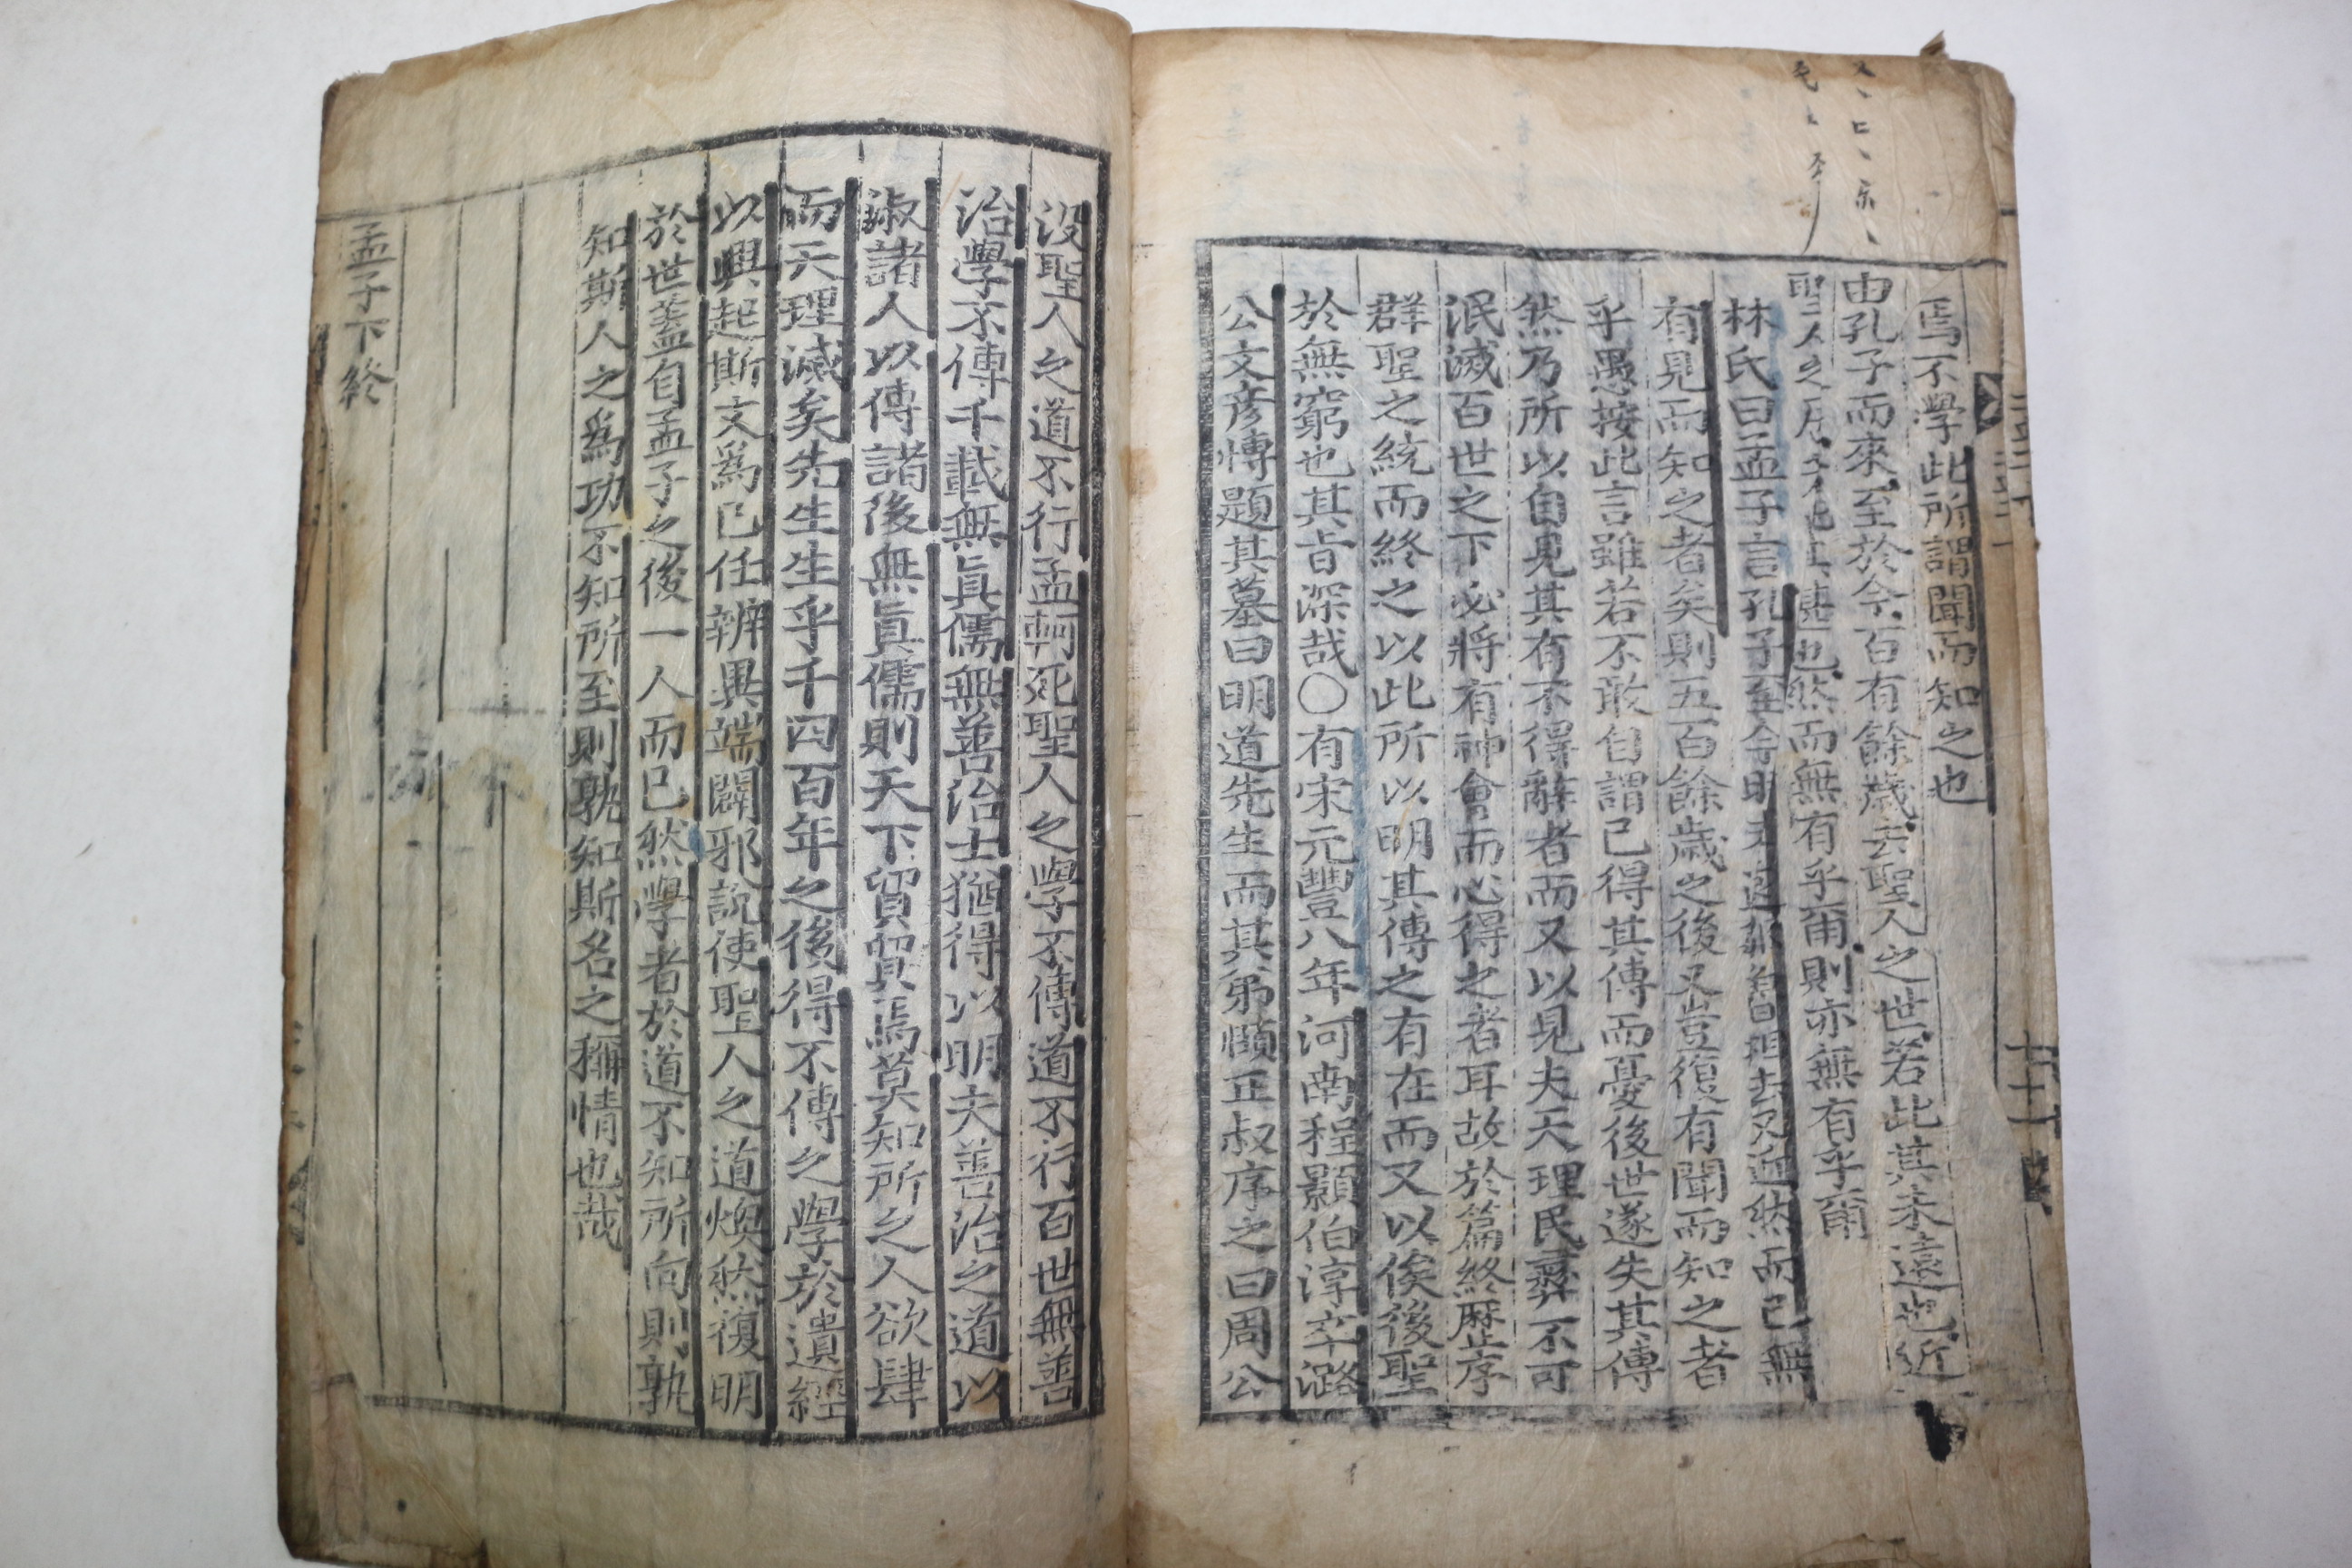 焉不學此所謂聞而知之也
由孔子而來至於今百有餘歲去聖人之世若此其未遠也近
聖人之居也然而無有乎爾則亦無有乎爾
林氏曰孟子言孔子至今時未遠然而已無
有見而知之者矣則五百餘歲之後又豈復有聞而知之者
乎愚按此言雖若不敢自謂已得其傳而憂後世遂失其傳
然乃所以自見其有不得辭者而又以見夫天理民彛不可
泯滅百世之下必將有神會而心得之者耳故於篇終歷序
群聖之統而終之以此所以明其傳之有在而又以俟後聖
於無窮也其旨深哉○有宋元豐八年河南程顥伯淳卒潞
公文彦博題其墓曰明道先生而其弟頤正叔序之曰周公
没聖人之道不行孟軻死聖人之學不傳道不行百世無善
治學不傳千載無眞儒無善治士猶得以明夫善治之道以
淑諸人以傳諸後無眞儒則天下貿貿焉莫知所之人欲肆
而天理滅矣先生生乎千四百年之後得不傳之學於遺經
以興起斯文爲己任辨異端闢邪說使聖人之道煥然復明
於世蓋自孟子之後一人而已然學者於道不知所向則孰
知斯人之爲功不知所至則孰知斯名之稱情也哉
孟子下終